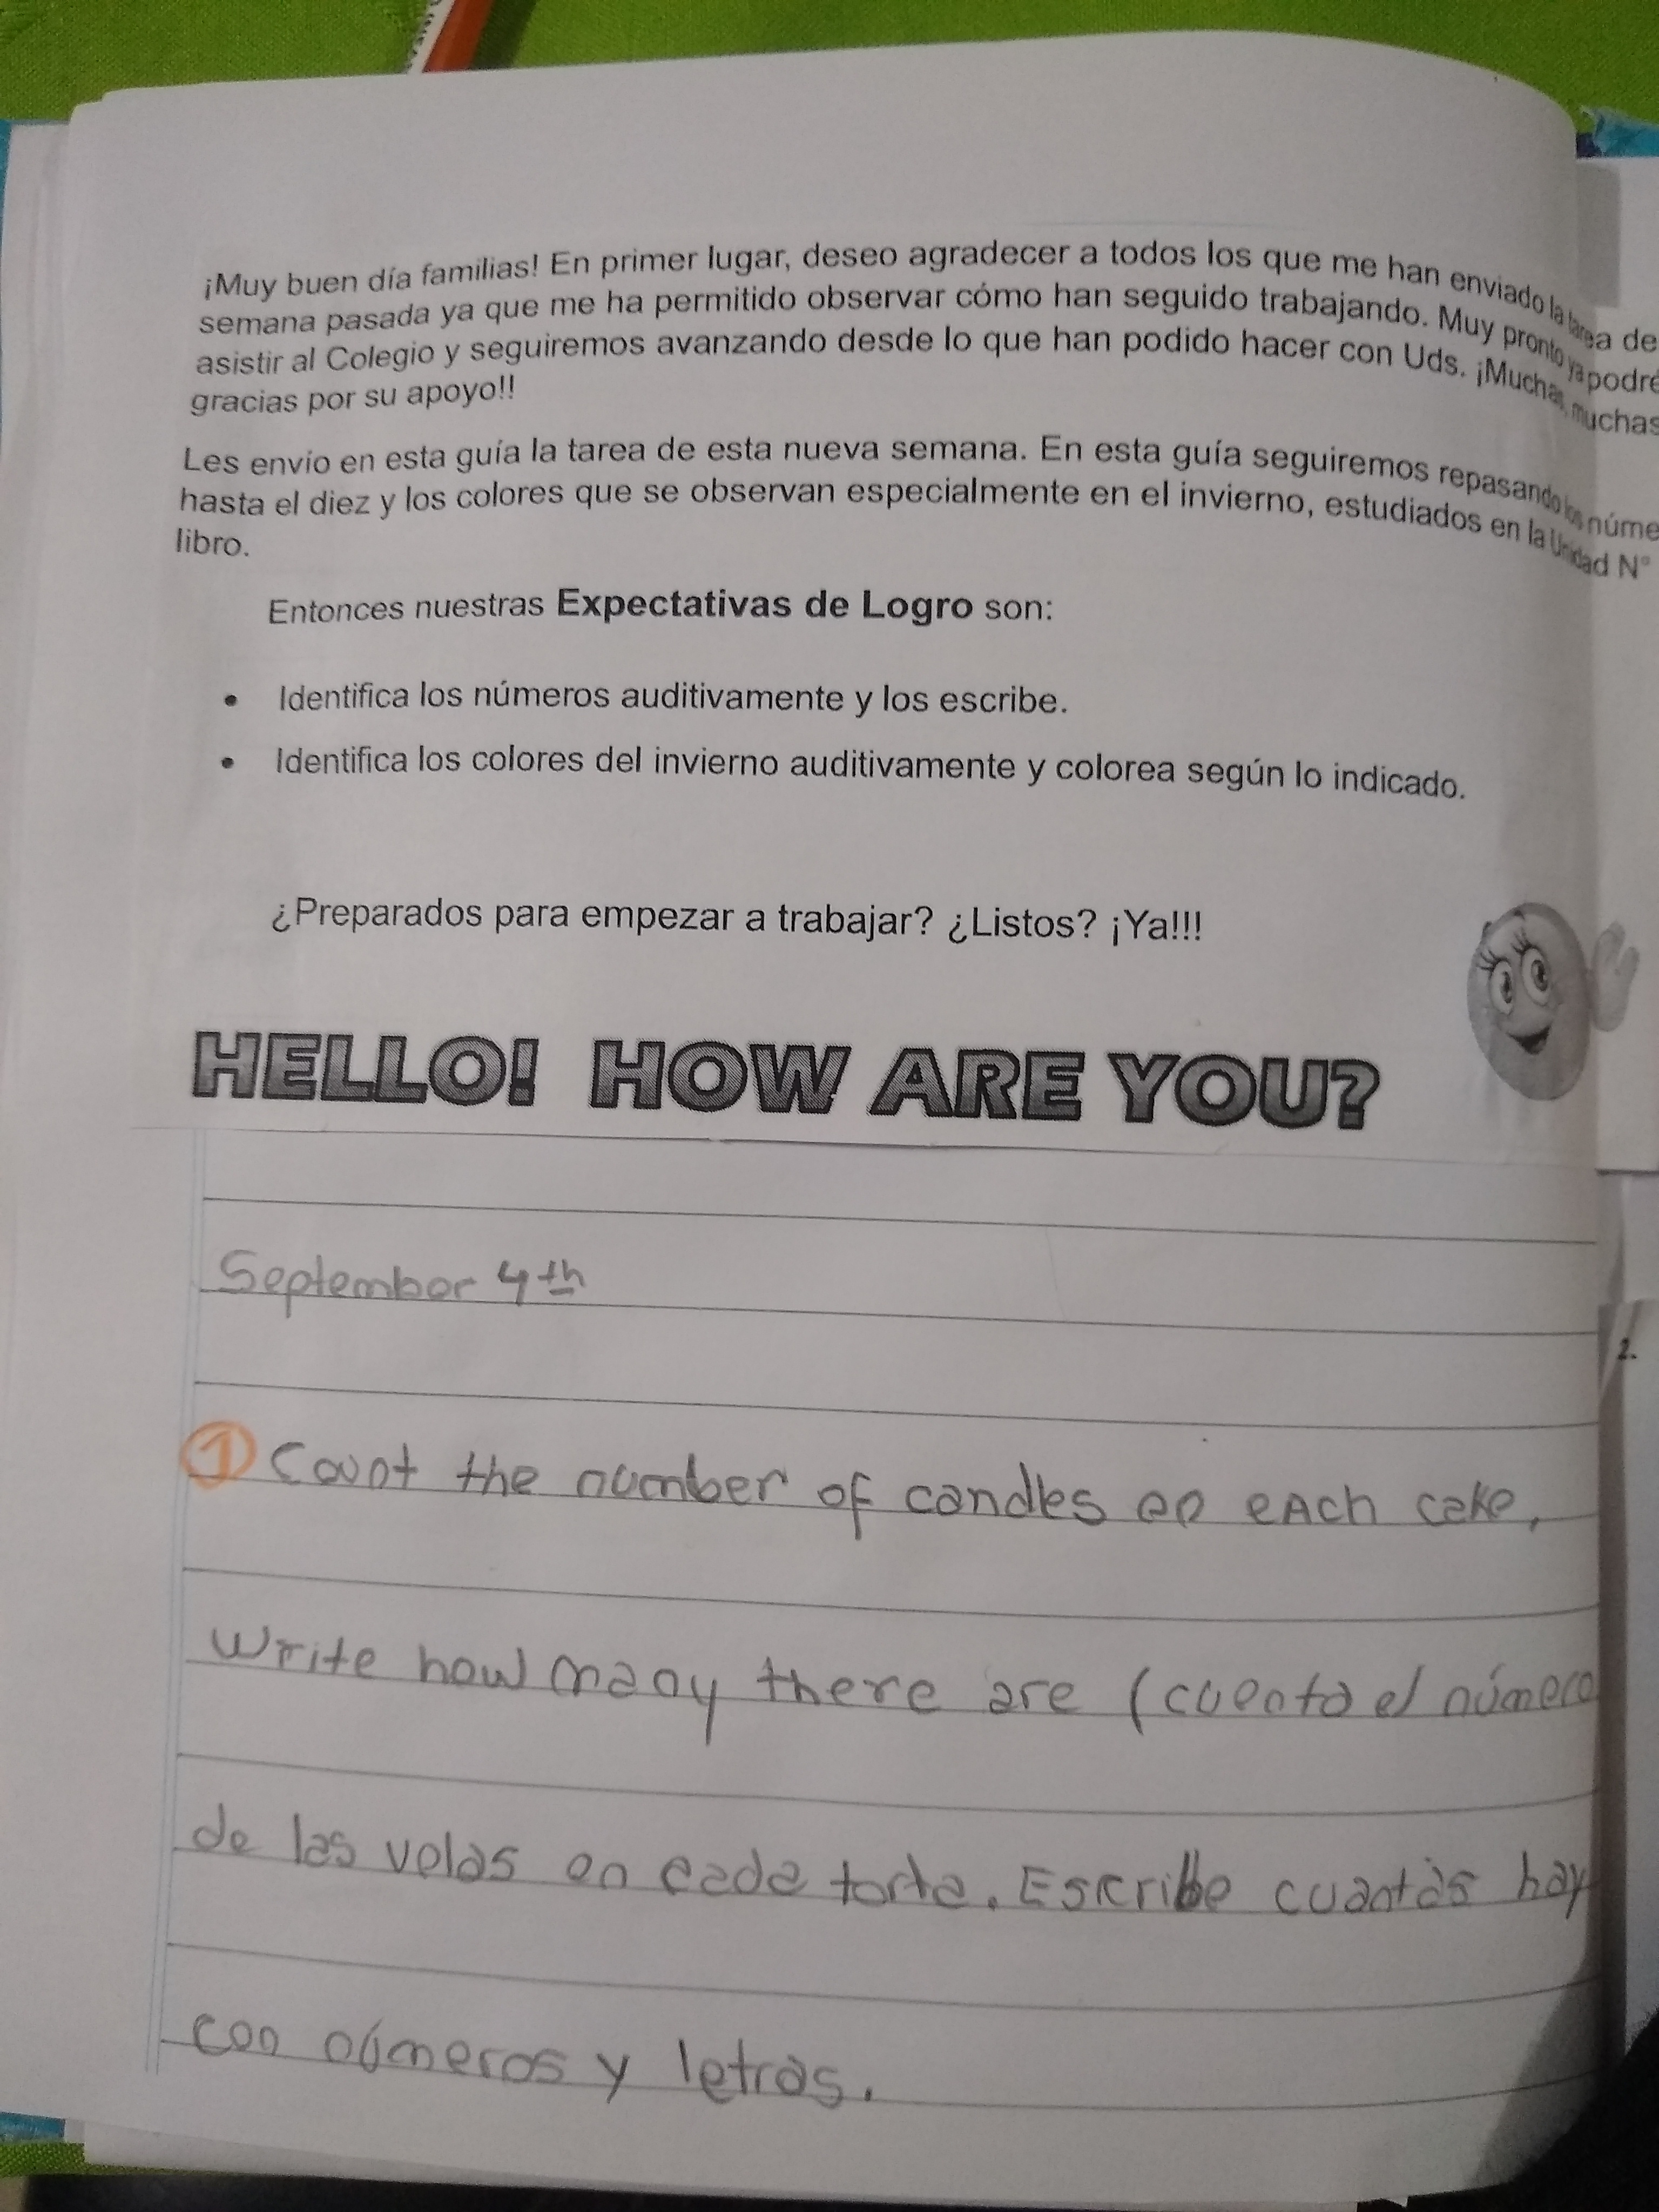 ¡Muy buen día familias! En primer lugar, deseo agradecer a todos los que me han enviado la tarea de
semana pasada ya que me ha permitido observar cómo han seguido trabajando. Muy pronto ya podre
asistir al Colegio y seguiremos avanzando desde lo que han podido hacer con Uds. ¡Muchas, muchas
gracias por su apoyo!!
Les envío en esta guía la tarea de esta nueva semana. En esta guía seguiremos repasando los núme
hasta el diez y los colores que se observan especialmente en el invierno, estudiados en la Unidad N°
libro.
Entonces nuestras Expectativas de Logro son:
• Identifica los números auditivamente y los escribe.
• Identifica los colores del invierno auditivamente y colorea según lo indicado.
¿Preparados para empezar a trabajar? ¿Listos? ¡Ya!!!
HELLO! HOW ARE YOU?
September 4th
2.
1 Count the number of candles en each cake,
Write how many there are (cuenta el número
de las velas en cada torta. Escribe cuantàs hay
con números y letras.